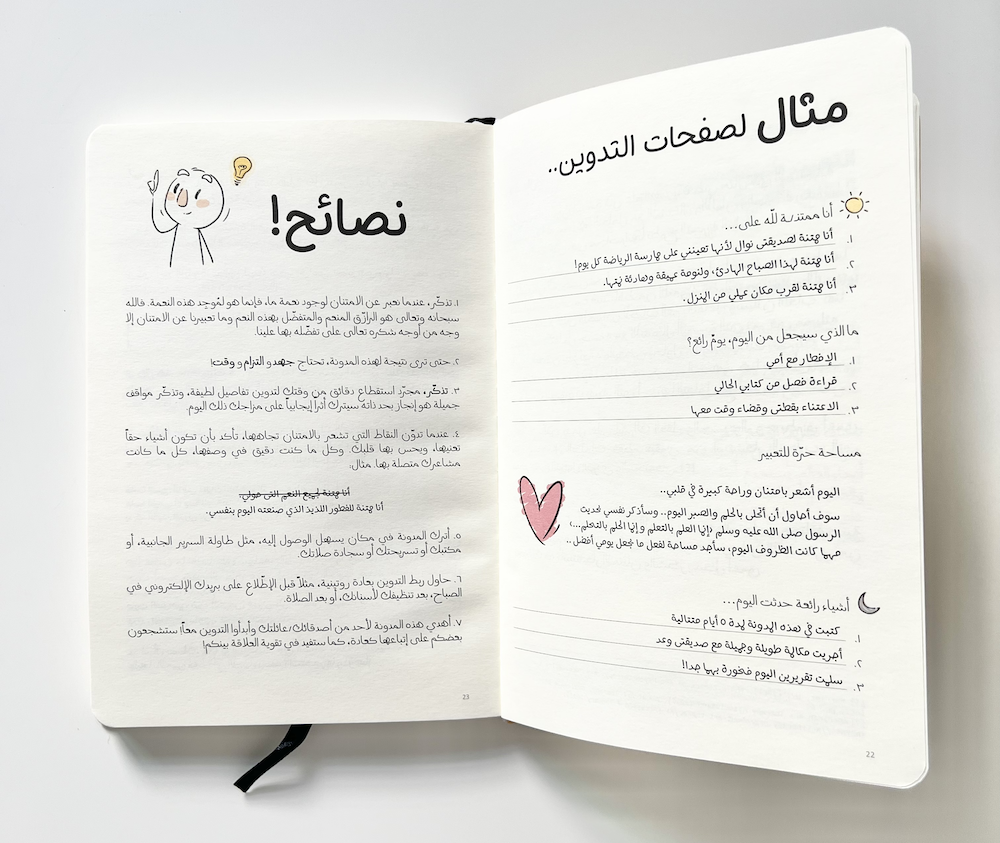 مثال لصفحات التدوين..
أنا ممتنة للّه على...
١. أنا ممتنة لصديقتي نوال لأنها تعينني على ممارسة الرياضة كل يوم!
٢. أنا ممتنة لهذا الصباح الهادئ، ولنومة عميقة وهادئة نمتها.
٣. أنا ممتنة لقرب مكان عملي من المنزل.
ما الذي سيجعل من اليوم، يومٌ رائع؟
١. الإفطار مع أمي
٢. قراءة فصل من كتابي الحالي
٣. الاعتناء بقطتي وقضاء وقت معها
مساحة حرّة للتعبير
اليوم أشعر بامتنان وراحة كبيرة في قلبي..
سوف أحاول أن أتحلى بالحلم والصبر اليوم.. وسأذكر نفسي بحديث
الرسول صلى الله عليه وسلم «إنما العلم بالتعلم وإنما الحلم بالتحلم...»
مهما كانت الظروف اليوم، سأجد مساحة لفعل ما يجعل يومي أفضل ..
أشياء رائعة حدثت اليوم...
١. كتبت في هذه المدونة لمدة ٥ أيام متتالية
٢. أجريت مكالمة طويلة وجميلة مع صديقتي وعد
٣. سلمت تقريرين اليوم فخورة بهما جدا!
22
نصائح!
١. تذكّر، عندما نعبر عن الامتنان لوجود نعمة ما، فإنما هو لمُوجِد هذه النعمة. فالله
سبحانه وتعالى هو الرازق المنعم والمتفضّل بهذه النعم وما تعبيرنا عن الامتنان إلا
وجه من أوجه شكره تعالى على تفضّله بها علينا.
٢. حتى ترى نتيجة لهذه المدونة، تحتاج جهد و التزام و وقت!
٣. تذكّر، مجرّد استقطاع دقائق من وقتك لتدوين تفاصيل لطيفة، وتذكّر مواقف
جميلة هو إنجاز بحد ذاته سيترك أثراً إيجابياً على مزاجك ذلك اليوم.
٤. عندما تدوّن النقاط التي تشعر بالامتنان تجاهها، تأكد بأن تكون أشياء حقاً
تعنيها، ويحس بها قلبك. وكل ما كنت دقيق في وصفها، كل ما كانت
مشاعرك متصلة بها. مثال:
أنا ممتنة لجميع النعم التي حولي.
أنا ممتنة للفطور اللذيذ الذي صنعته اليوم بنفسي.
٥. أترك المدونة في مكان يسهل الوصول إليه، مثل طاولة السرير الجانبية، أو
مكتبك أو تسريحتك أو سجادة صلاتك.
٦. حاول ربط التدوين بعادة روتينية، مثلاً قبل الإطّلاع على بريدك الإلكتروني في
الصباح، بعد تنظيفك لأسنانك، أو بعد الصلاة.
٧. أهدي هذه المدونة لأحد من أصدقائك/عائلتك وأبدأوا التدوين معاً! ستشجعون
بعضكم على إتباعها كعادة، كما ستفيد في تقوية العلاقة بينكم!
23